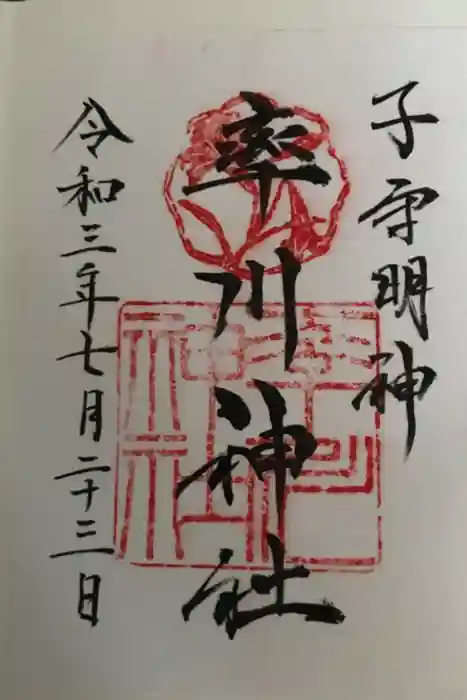 子守明神
率川神社
令和三年七月二十三日